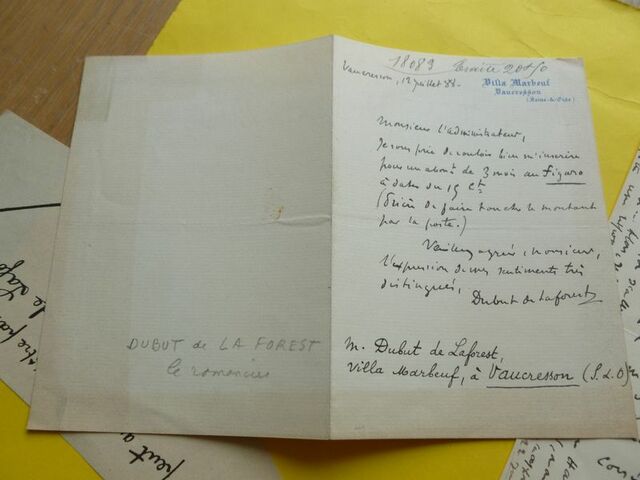 18083
Villa Marbeuf
Vaucresson
(Seine-&-Oise)
Vaucresson, 12 juillet 88.
Monsieur l'administrateur,
Je vous prie de vouloir bien m'inscrire
pour un abont de 3 mois au Figaro
à dater du 15 ct
(Prière de faire toucher le montant
par la poste.)
Veuillez agréer, Monsieur,
l'expression de mes sentiments très
distingués,
Dubut de Laforest
M. Dubut de Laforest,
Villa Marbeuf, à Vaucresson (S. & O)
DUBUT de LA FOREST
le romancier